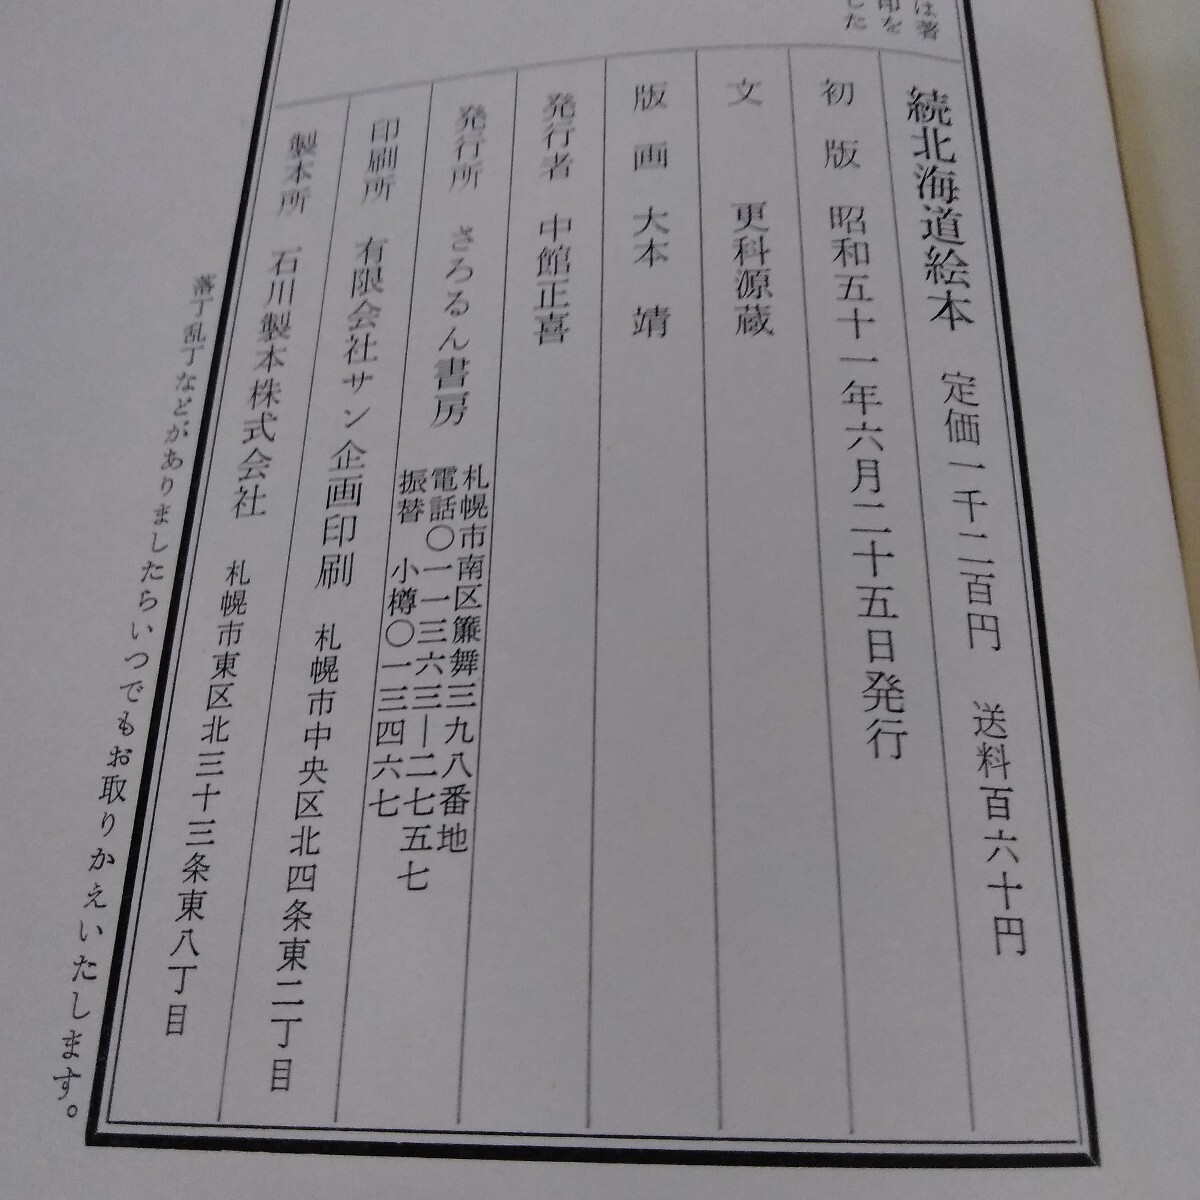 は著
印を
した
続北海道絵本 定価一千二百円 送料百六十円
初版 昭和五十一年六月二十五日発行
文 更科源蔵
版画 大本靖
発行者 中館正喜
発行所 さろるん書房 札幌市南区簾舞三九八番地
電話〇一一三六三―二七五七
振替 小樽〇一三四六七
印刷所 有限会社サン企画印刷 札幌市中央区北四条東二丁目
製本所 石川製本株式会社 札幌市東区北三十三条東八丁目
落丁乱丁などがありましたらいつでもお取りかえいたします。